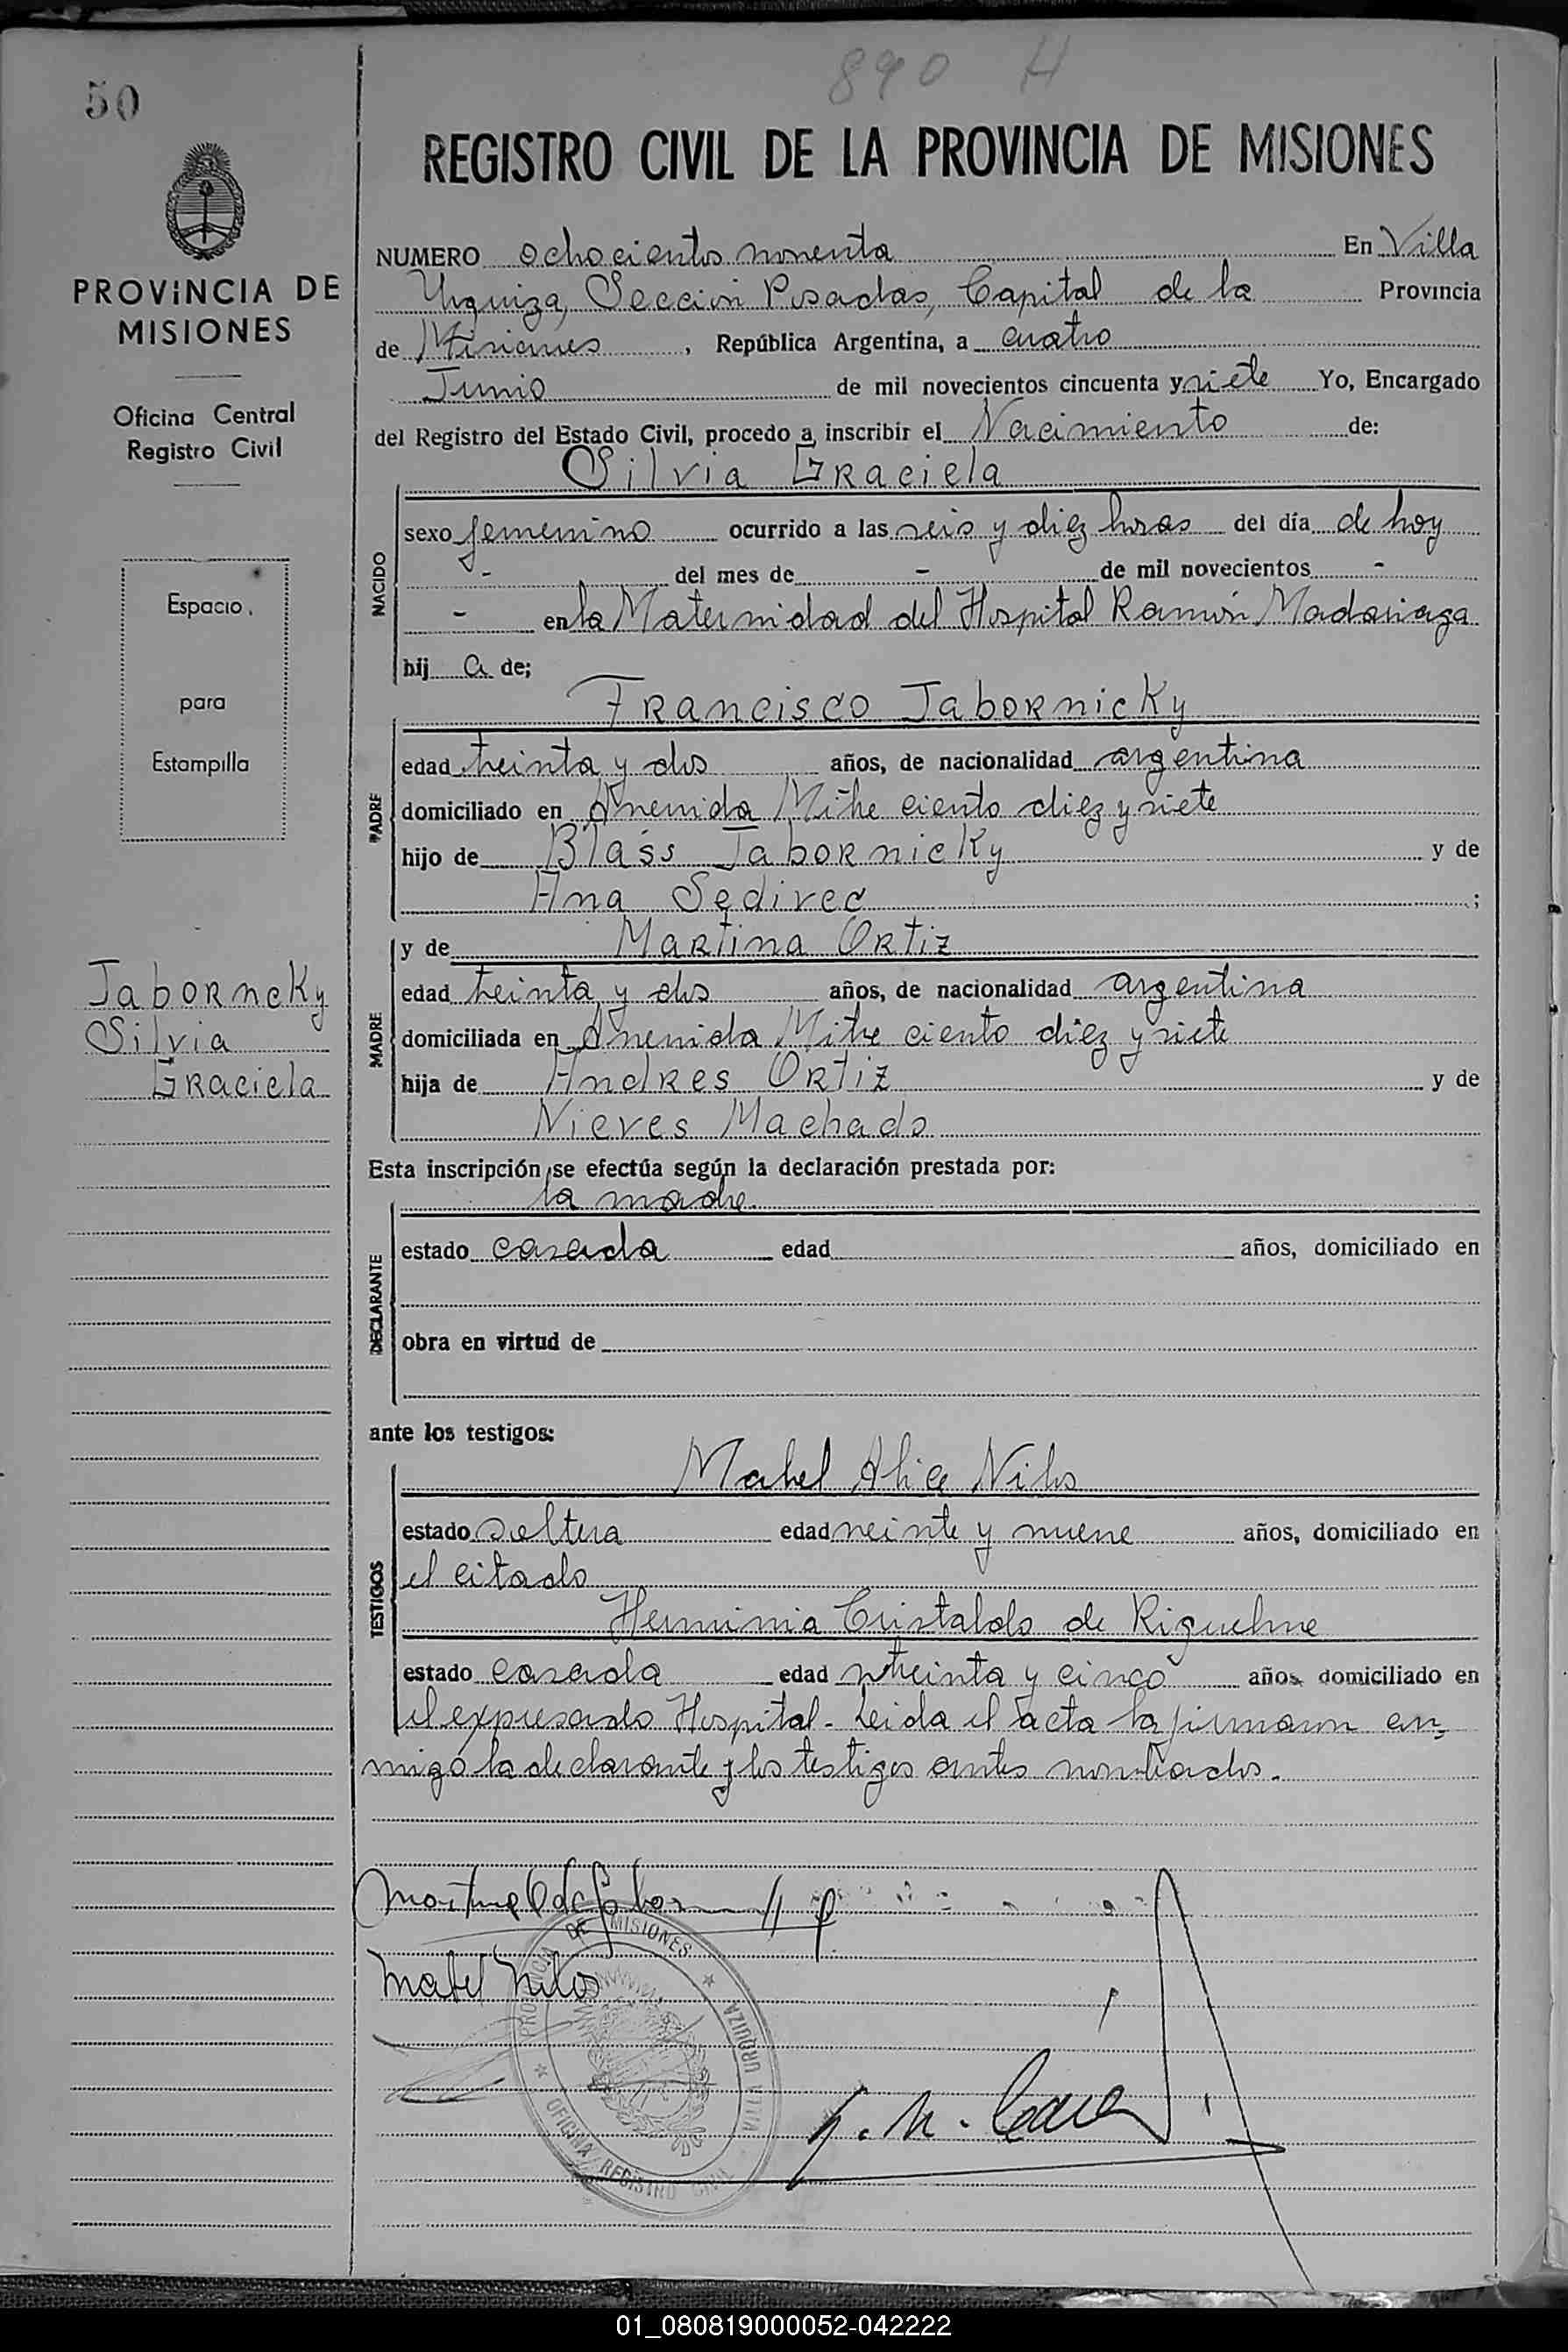 890 H
50
REGISTRO CIVIL DE LA PROVINCIA DE MISIONES
PROVINCIA DE
MISIONES
Oficina Central
Registro Civil
Espacio
para
Estampilla
Jaborncky
Silvia
Graciela
NUMERO ochocientos noventa En Villa
Urquiza, Sección Posadas, Capital de la Provincia
de Misiones, República Argentina, a cuatro
Junio de mil novecientos cincuenta y siete Yo, Encargado
del Registro del Estado Civil, procedo a inscribir el Nacimiento de:
Silvia Graciela
NACIDO
sexo femenino ocurrido a las seis y diez horas del día de hoy
- del mes de - de mil novecientos -
- en la Maternidad del Hospital Ramón Madariaga
hij a de;
Francisco Jabornicky
PADRE
edad treinta y dos años, de nacionalidad argentina
domiciliado en Avenida Mitre ciento diez y siete
hijo de Blass Jabornicky y de
Ana Sedivec ;
y de Martina Ortiz
MADRE
edad treinta y dos años, de nacionalidad argentina
domiciliada en Avenida Mitre ciento diez y siete
hija de Andres Ortiz y de
Nieves Machado
Esta inscripción se efectúa según la declaración prestada por:
la madre.
DECLARANTE
estado casada edad años, domiciliado en
obra en virtud de
ante los testigos:
Mabel Alice Nilos
TESTIGOS
estado soltera edad veinte y nueve años, domiciliado en
el citado
Herminia Cristaldo de Riquelme
estado casada edad treinta y cinco años domiciliado en
el expresado Hospital - Leida el acta la firmaron con-
migo la declarante y los testigos antes nombrados.
Mabel Nilos
PROVINCIA DE MISIONES
VILLA URQUIZA
OFICINA REGISTRO CIVIL
01_080819000052-042222